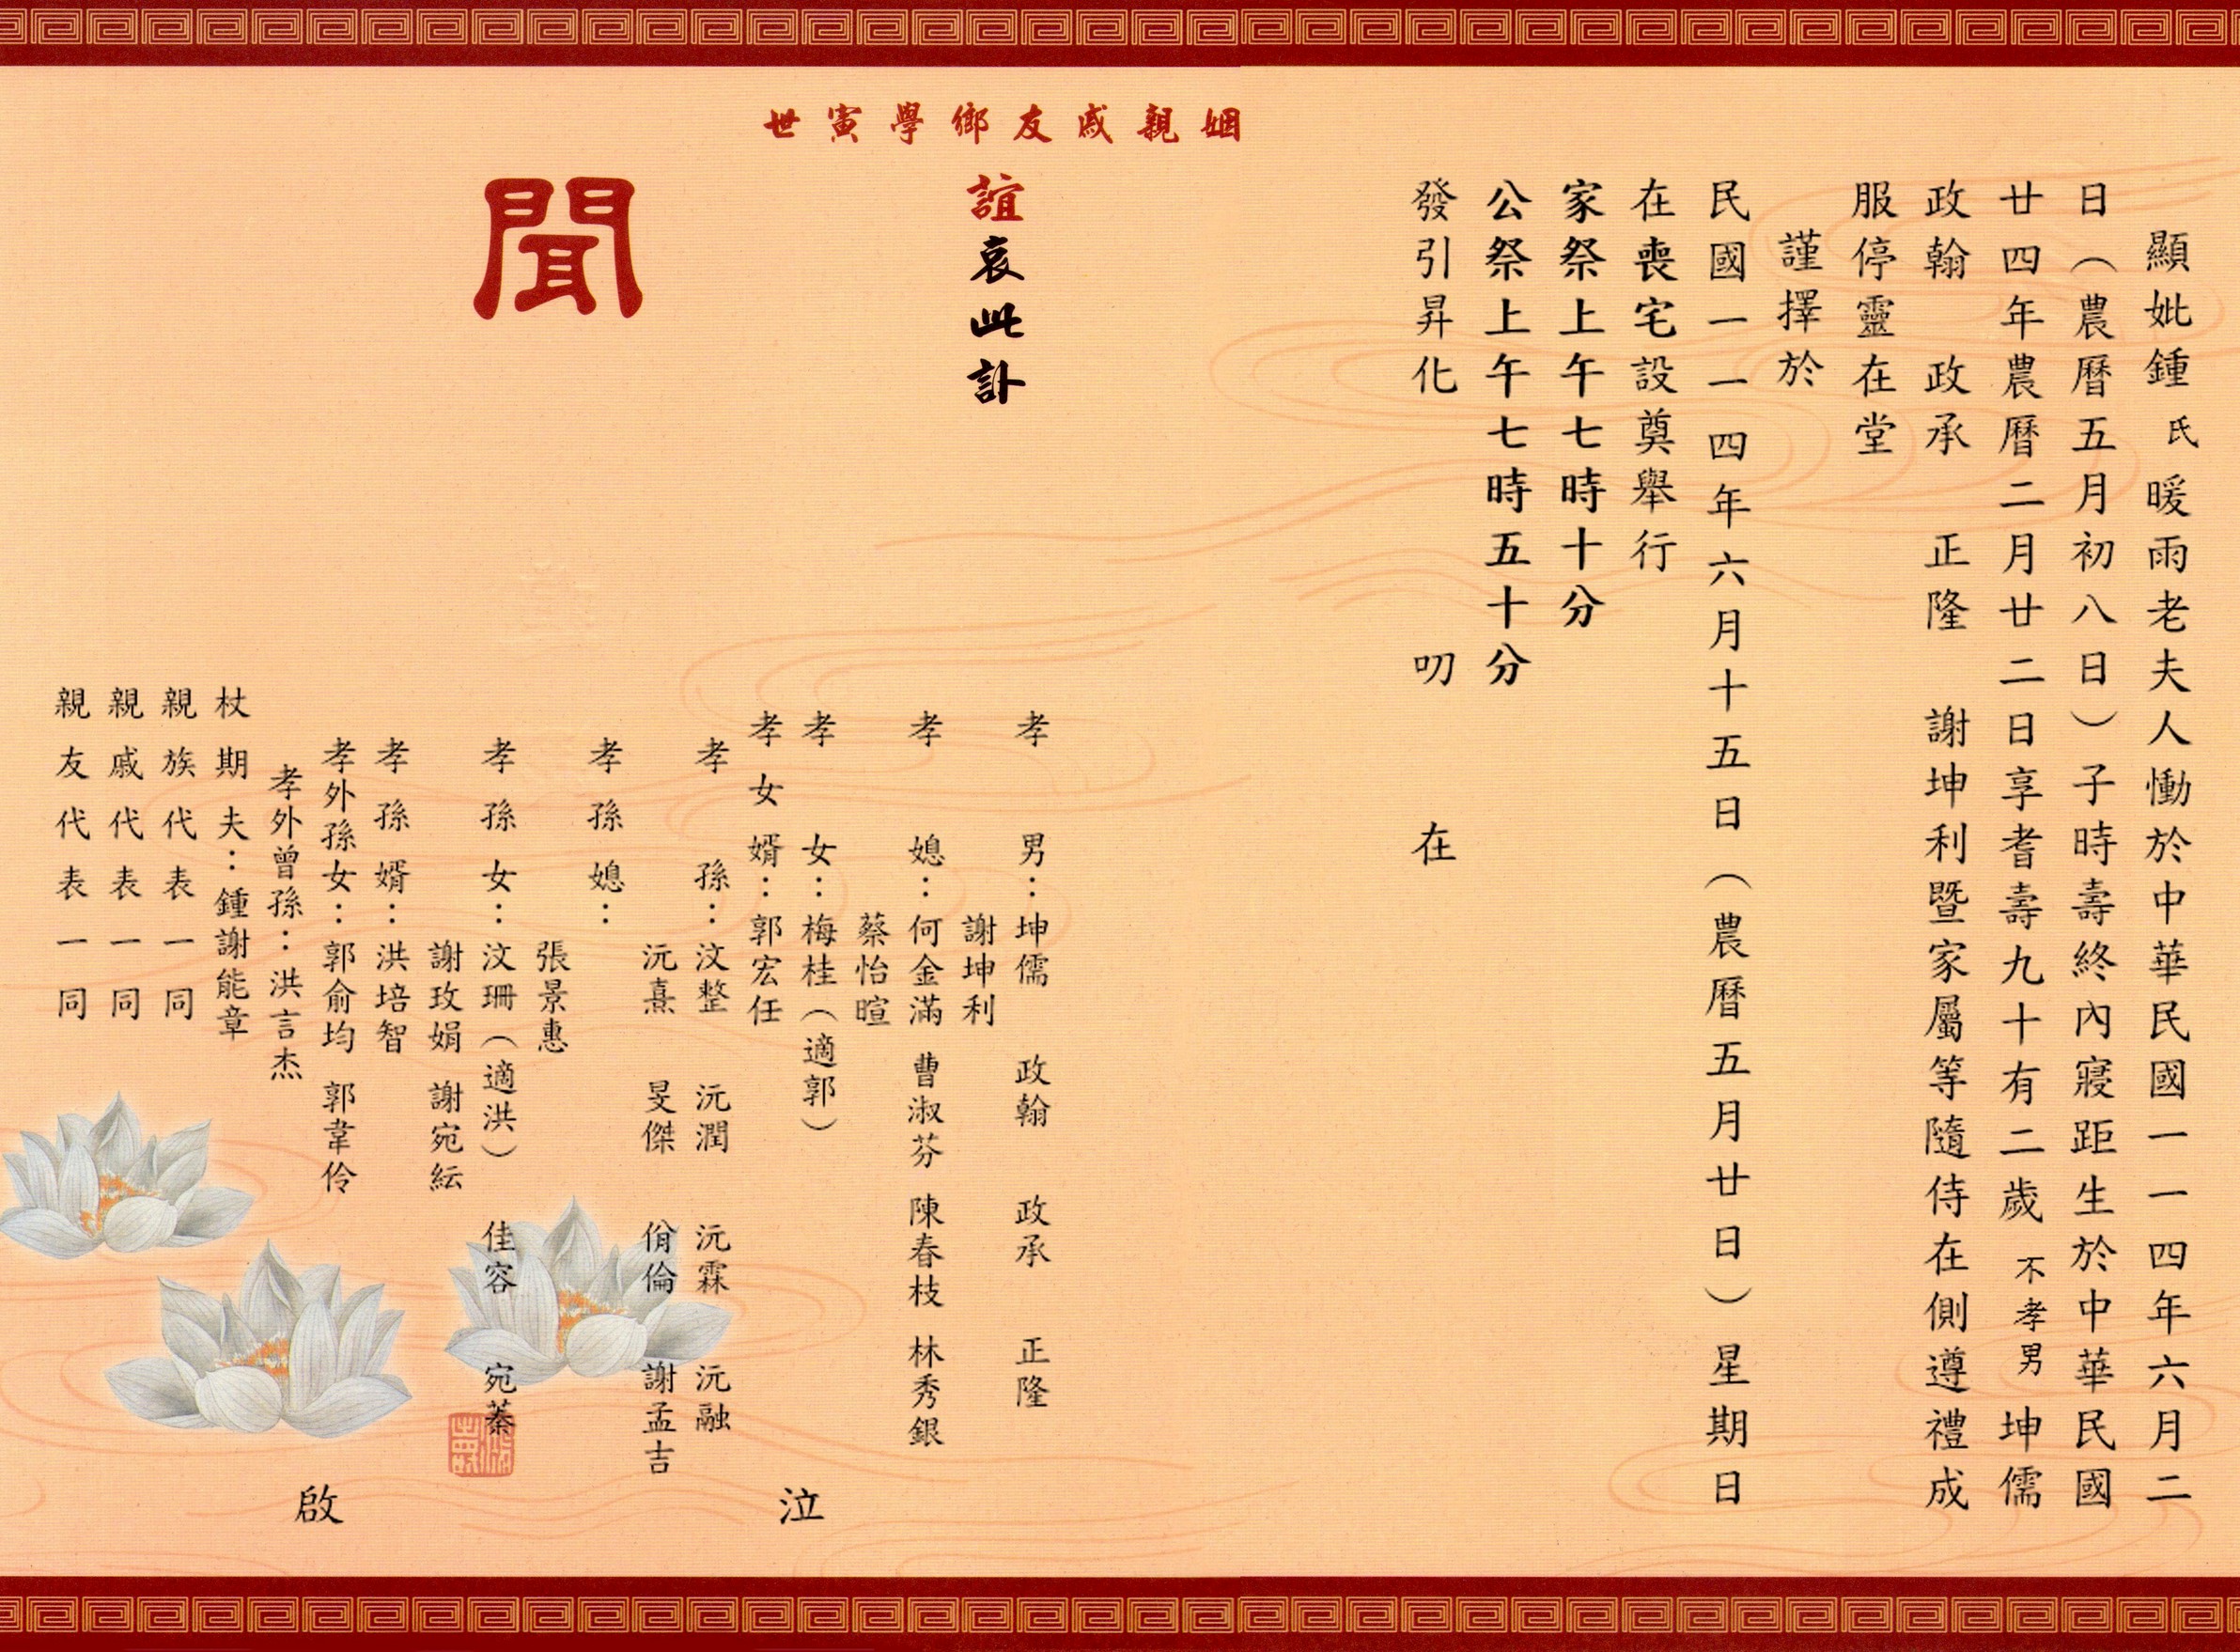 顯妣鍾氏暖雨老夫人慟於中華民國一一四年六月二
日（農曆五月初八日）子時壽終內寢距生於中華民國
廿四年農曆二月廿二日享耆壽九十有二歲不孝男坤儒
政翰 政承 正隆 謝坤利暨家屬等隨侍在側遵禮成
服停靈在堂
謹擇於
民國一一四年六月十五日（農曆五月廿日）星期日
在喪宅設奠舉行
家祭上午七時十分
公祭上午七時五十分
發引昇化 叨 在
姻親戚友鄉學寅世
誼哀此訃
聞
孝男：坤儒 政翰 政承 正隆
謝坤利
孝媳：何金滿 曹淑芬 陳春枝 林秀銀
蔡怡暄
孝女：梅桂（適郭）
孝女婿：郭宏任
孝孫：汶整 沅潤 沅霖 沅融
沅熹 旻傑 佾倫 謝孟吉
孝孫媳：
張景惠
孝孫女：汶珊（適洪） 佳容 宛蓁
謝玫娟 謝宛紜
孝孫婿：洪培智
孝外孫女：郭俞均 郭韋伶
孝外曾孫：洪言杰
杖期夫：鍾謝能章
親族代表一同
親戚代表一同
親友代表一同
泣 啟